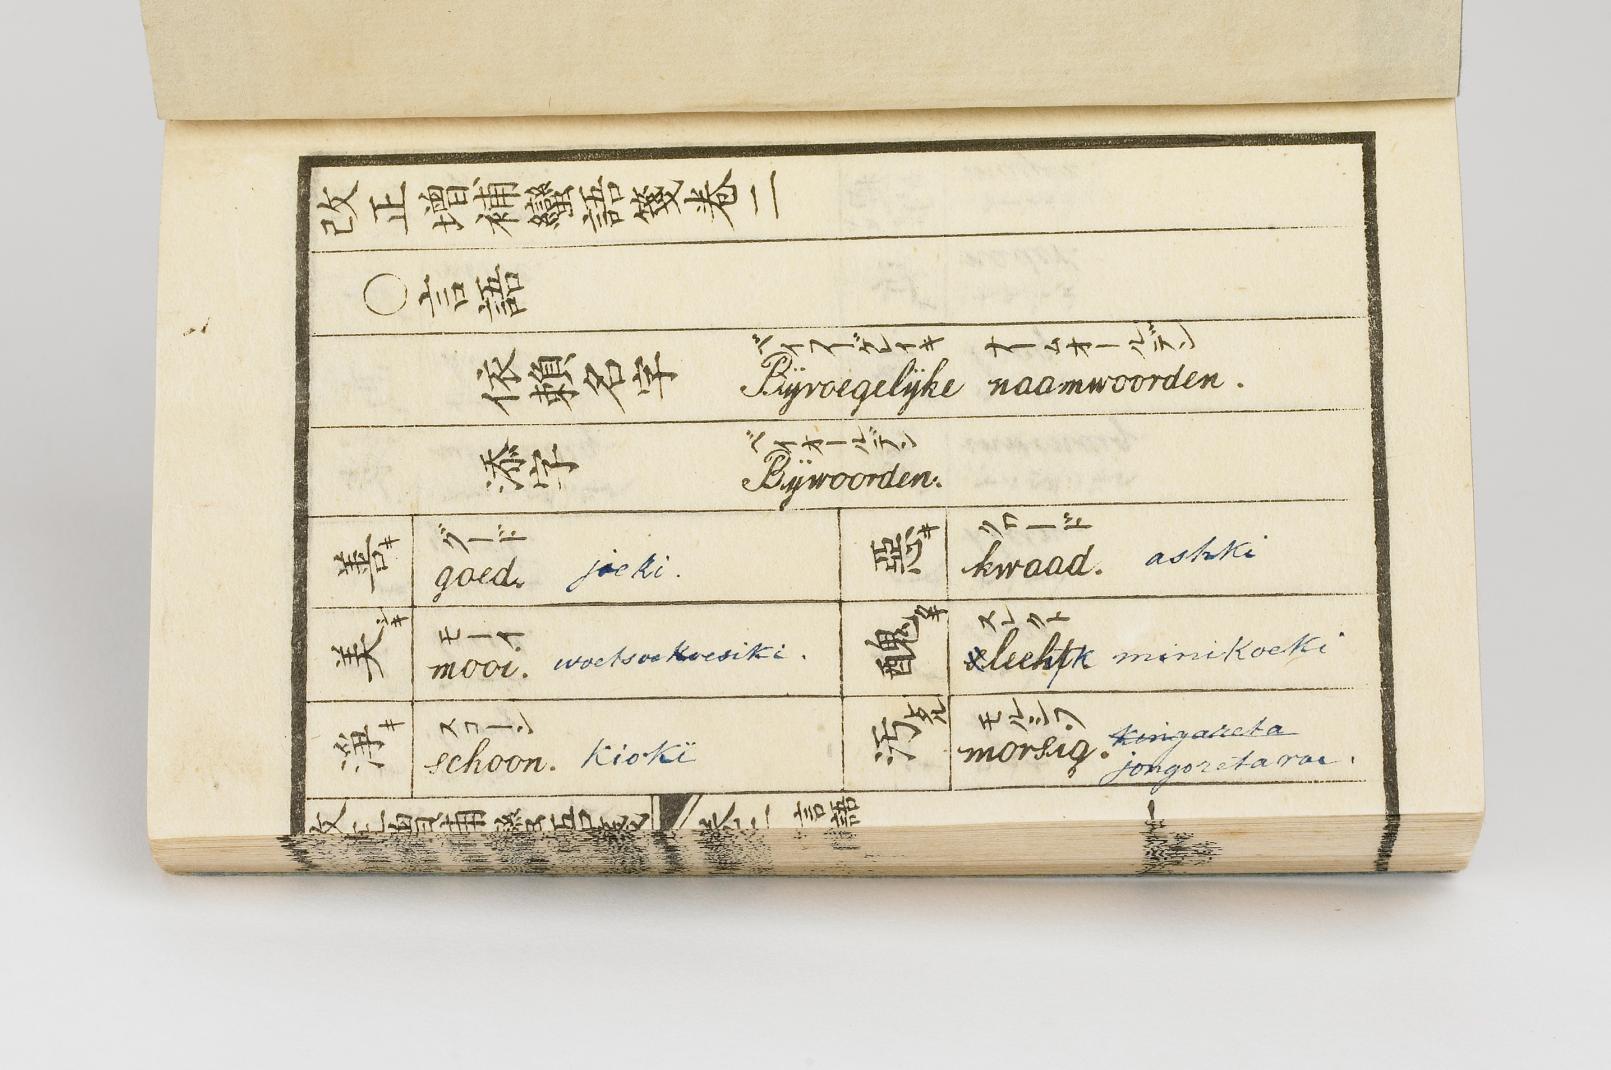 改正增補蠻語箋卷二
○言語
依頼名字 ベイフーゲレイキ ナームオールデン
Bijvoegelijke naamwoorden.
添字 ベイオールデン
Bijwoorden.
善キ グード goed. joeki.
惡キ クワード kwaad. ashki
美シキ モーイ mooi. woetsoekoesiki.
醜キ スレクト slecht minikoeki
淨キ スコーン schoon. kiokï
汚タル モルシフ morsig. kingareta
jongoretaroe.
改正增補蠻語箋 卷二 言語 一